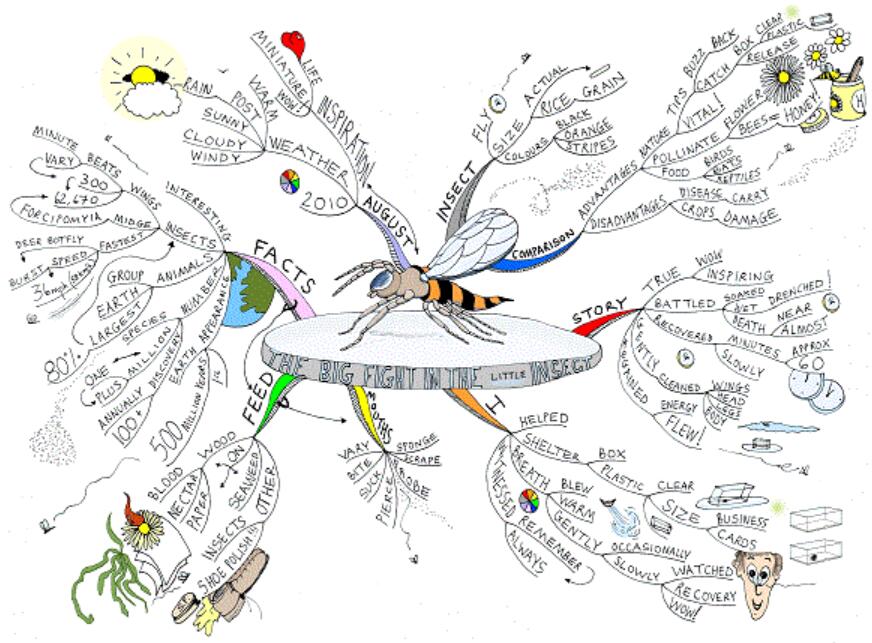 THE BIG FIGHT IN THE LITTLE INSECT
AUGUST
2010
WEATHER
WINDY
CLOUDY
SUNNY
POST
RAIN
WARM
INSPIRATION
MINIATURE
WOW!
LIFE
INSECT
FLY
SIZE
ACTUAL
RICE
GRAIN
COLOURS
BLACK
ORANGE
STRIPES
COMPARISON
ADVANTAGES
NATURE
VITAL!
TIPS
BUZZ
BACK
CATCH
BOX
CLEAR
PLASTIC
RELEASE
POLLINATE
FLOWER
BEES = HONEY!
H
FOOD
BIRDS
BATS
REPTILES
DISADVANTAGES
DISEASE
CARRY
CROPS
DAMAGE
STORY
TRUE
WOW
INSPIRING
BATTLED
SOAKED
WET
DRENCHED!
DEATH
NEAR
ALMOST
RECOVERED
MINUTES
APPROX
60
SLOWLY
GENTLY
CLEANED
WINGS
HEAD
LEGS
BODY
REGAINED
ENERGY
FLEW!
I
HELPED
SHELTER
BOX
PLASTIC
CLEAR
SIZE
BUSINESS
CARDS
BREATH
BLEW
WARM
GENTLY
OCCASIONALLY
SLOWLY
WATCHED
RECOVERY
WOW!
WITNESSED
REMEMBER
ALWAYS
MOUTHS
VARY
BITE
SUCK
PIERCE
PROBE
SCRAPE
SPONGE
FEED
ON
WOOD
BLOOD
NECTAR
PAPER
SEAWEED
OTHER
INSECTS
SHOE POLISH
FACTS
INTERESTING
INSECTS
WINGS
BEATS
MINUTE
VARY
300
62,670
MIDGE
FORCIPOMYIA
FASTEST
DEER BOTFLY
BURST SPEED
36mph
ANIMALS
GROUP
EARTH
LARGEST
80%
NUMBER
SPECIES
MILLION
ONE
PLUS
DISCOVERY
ANNUALLY
100+
APPEARANCE
EARTH
500
MILLION YEARS